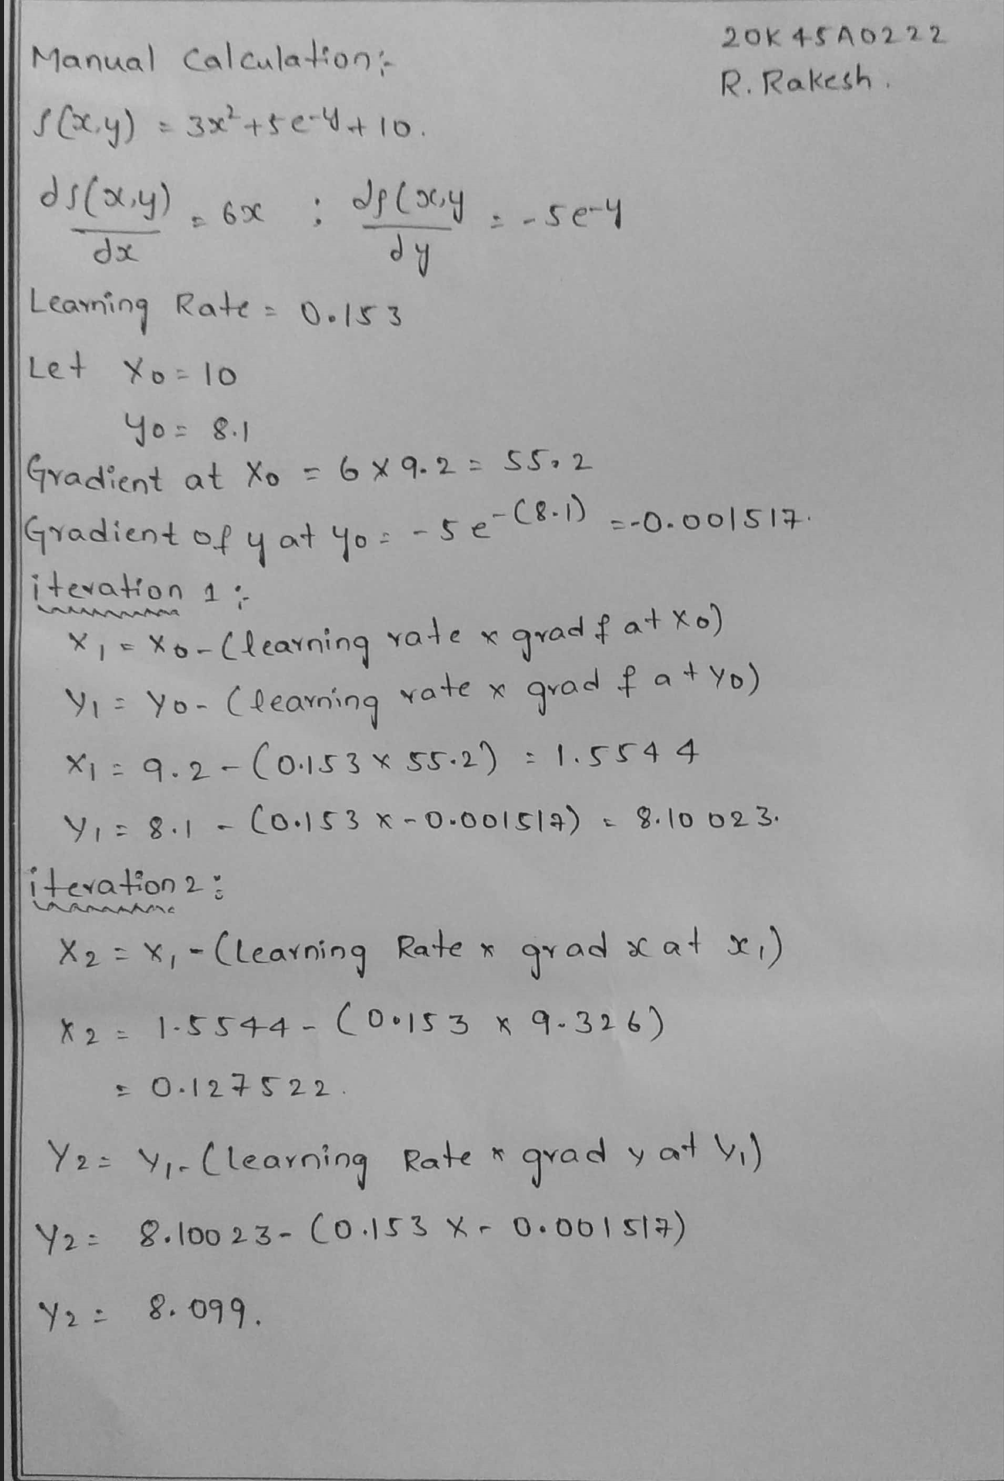 20K45A0222
R. Rakesh.
Manual Calculation:-
f(x,y) = 3x²+5e-y+10.
df(x,y)/dx = 6x ; df(x,y/dy = -5e-y
Learning Rate = 0.153
Let X0 = 10
y0 = 8.1
Gradient at X0 = 6 x 9.2 = 55.2
Gradient of y at y0 = -5e-(8.1) = -0.001517.
iteration 1 :-
X1 = X0 - (learning rate x grad f at X0)
Y1 = Y0 - (learning rate x grad f at Y0)
X1 = 9.2 - (0.153 x 55.2) = 1.5544
Y1 = 8.1 - (0.153 x -0.001517) = 8.10023.
iteration 2 :
X2 = X1 - (Learning Rate x grad x at x1)
X2 = 1.5544 - (0.153 x 9.326)
= 0.127522.
Y2 = Y1 - (learning Rate x grad y at Y1)
Y2 = 8.10023 - (0.153 x - 0.001517)
Y2 = 8.099.